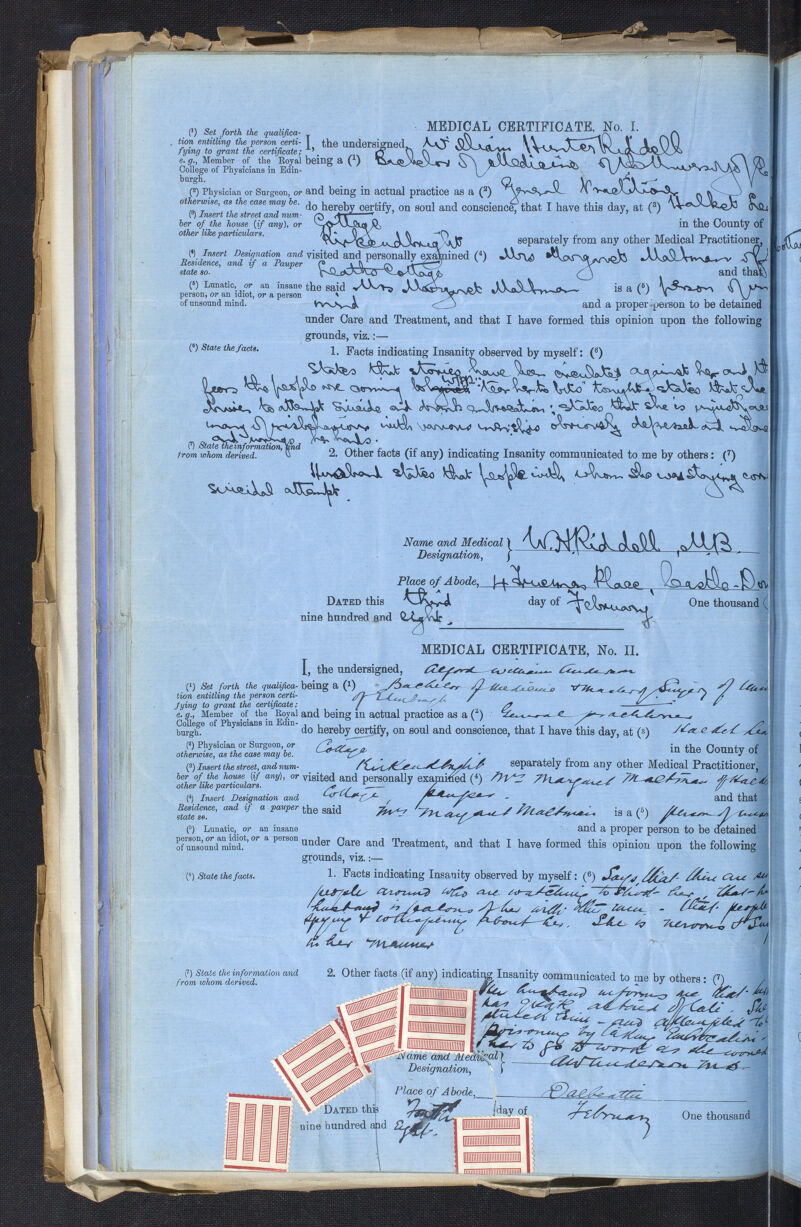 MEDICAL CERTIFICATE, No. I.
(¹) Set forth the qualifica-
tion entitling the person certi-
fying to grant the certificate;
e.g., Member of the Royal
College of Physicians in Edin-
burgh.
I, the undersigned, William Hunter Riddell
being a (¹) Bachelor of Medicine of the University of
(²) Physician or Surgeon, or
otherwise, as the case may be.
and being in actual practice as a (²) General Practitioner
(³) Insert the street and num-
ber of the house (if any), or
other like particulars.
do hereby certify, on soul and conscience, that I have this day, at (³) Halket
Cottage in the County of
Kirkcudbright separately from any other Medical Practitioner,
(⁴) Insert Designation and
Residence, and if a Pauper
state so.
visited and personally examined (⁴) Mrs Margaret Maltman of
Leaths Cottage and that
(⁵) Lunatic, or an insane
person, or an idiot, or a person
of unsound mind.
the said Mrs Margaret Maltman is a (⁵) person of un
mind and a proper person to be detained
under Care and Treatment, and that I have formed this opinion upon the following
grounds, viz.:—
(⁶) State the facts.
1. Facts indicating Insanity observed by myself: (⁶)
States that stories have been circulated against her and
fears the people are coming to "tear her to bits" tonight. states that she
to attempt suicide and drank embrocation; states that she is unjustly
many of misbehaviour with various men; is obviously depressed and
and wrings her hands.
(⁷) State the information, and
from whom derived.
2. Other facts (if any) indicating Insanity communicated to me by others: (⁷)
Husband states that people with whom she was staying
suicidal attempt.
Name and Medical
Designation,
W. H. Riddell, M.B.
Place of Abode, 4 Place, Castle-Do
DATED this third day of February One thousand
nine hundred and eight.
MEDICAL CERTIFICATE, No. II.
I, the undersigned, William Anderson
(¹) Set forth the qualifica-
tion entitling the person certi-
fying to grant the certificate;
e.g., Member of the Royal
College of Physicians in Edin-
burgh.
being a (¹) Bachelor of Medicine & Master of Surgery of
of Edinburgh
and being in actual practice as a (²) General practitioner
(²) Physician or Surgeon, or
otherwise, as the case may be.
do hereby certify, on soul and conscience, that I have this day, at (³)
Cottage in the County of
(³) Insert the street, and num-
ber of the house (if any), or
other like particulars.
Kirkcudbright separately from any other Medical Practitioner,
visited and personally examined (⁴) Mrs Margaret Maltman of
(⁴) Insert Designation and
Residence, and if a pauper
state so.
Cottage pauper. and that
the said Mrs Margaret Maltman is a (⁵) person of
(⁵) Lunatic, or an insane
person, or an idiot, or a person
of unsound mind.
and a proper person to be detained
under Care and Treatment, and that I have formed this opinion upon the following
grounds, viz.:—
(⁶) State the facts.
1. Facts indicating Insanity observed by myself: (⁶) Says that there are
people around who are watching to shoot her, that
husband is jealous of her with other men - that people
spying & whispering about her. She is nervous &
in her manner
(⁷) State the information and
from whom derived.
2. Other facts (if any) indicating Insanity communicated to me by others: (⁷)
Her husband informs me that
has of late. She
struck him - and attempted to
poisoning by taking Embrocation.
her to go to work as she would
Name and Medical
Designation,
AW Anderson M.B.
Place of Abode, Dalbeattie
DATED this Fourth day of February One thousand
nine hundred and Eight.